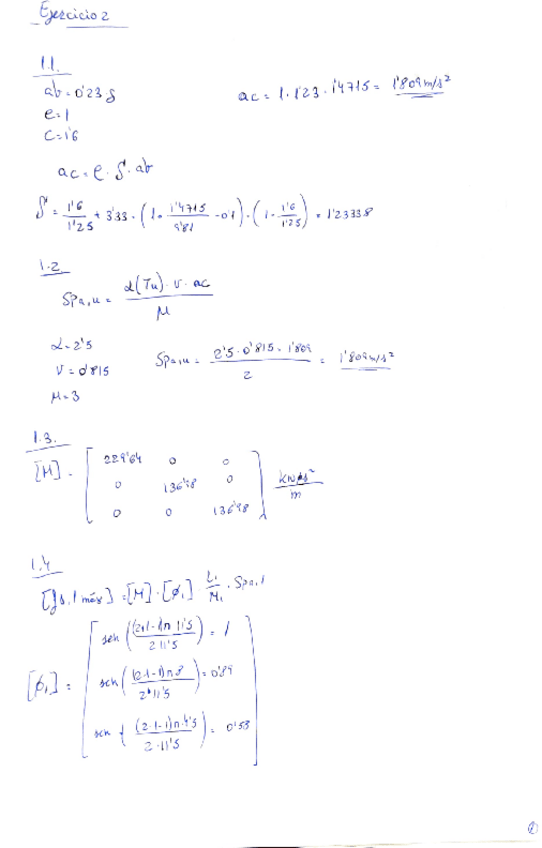 Ejercicio 2
1.1.
ab = 0'23 g
e = 1
C = 1'6
ac = 1 · 1'23 · 1'4715 = 1'809 m/s²
ac = e · S · ab
S = 1'6/1'25 + 3'33 · (1 · 1'4715/9'81 - 0'1) · (1 - 1'6/1'25) = 1'2333 8
1.2
Spa,u = α(Tu) · v · ac / μ
α = 2'5
v = 0'815
μ = 3
Spa,u = 2'5 · 0'815 · 1'809 / 2 = 1'809 m/s²
1.3.
[M] = [ 229'64 0 0
0 136'98 0
0 0 136'98 ] kN s²/m
1.4
[fs,1 máx] = [M] · [ϕ1] · L1/M1 · Spa,1
[ϕ1] = [ sen ((2·1-1)π 11'5 / 2 11'5) = 1
sen ((2·1-1)π 8 / 2·11'5) = 0'89
sen ((2·1-1)π 4'5 / 2·11'5) = 0'58 ]